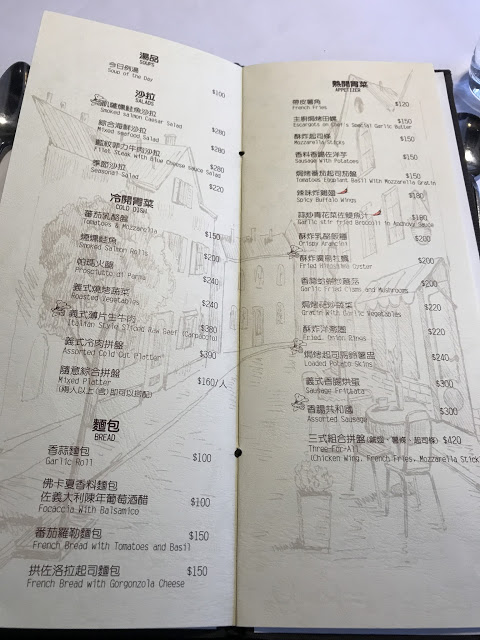 湯品
SOUPS
今日例湯 $100
Soup of the Day
沙拉
SALADS
凱薩燻鮭魚沙拉 $280
Smoked salmon Caesar Salad
綜合海鮮沙拉 $280
Mixed seafood Salad
藍紋菲力牛肉沙拉 $280
Filet Steak with Blue Cheese sauce Salad
季節沙拉 $220
Seasonal Salad
冷開胃菜
COLD DISH
番茄乳酪盤 $150
Tomatoes & Mozzarella
燻鮭魚 $200
Smoked Salmon Rolls
帕瑪火腿 $240
Prosciutto di Parma
義式燒烤蔬菜 $240
Roasted Vegetables
義式薄片生牛肉 $380
Italian Style Sliced Raw Beef (Carpaccio)
義式冷肉拼盤 $300
Assorted Cold Cut Platter
隨意綜合拼盤 $160/人
Mixed Platter
(兩人以上(含)即可以搭配)
麵包
BREAD
香蒜麵包 $100
Garlic Roll
佛卡夏香料麵包
佐義大利陳年葡萄酒醋 $100
Focaccia With Balsamico
番茄羅勒麵包 $150
French Bread with Tomatoes and Basil
拱佐洛拉起司麵包 $150
French Bread with Gorgonzola Cheese
熱開胃菜
APPETIZER
帶皮薯角 $120
French Fries
主廚焗烤田螺 $150
Escargots en Chef's Special Garlic Butter
酥炸起司條 $150
Mozzarella Sticks
香料香腸佐洋芋 $150
Sausage with Potatoes
焗烤番茄起司茄盤 $150
Tomatoes Eggplant Basil With Mozzarella Gratin
辣味炸雞翅 $180
Spicy Buffalo Wings
蒜炒青花菜佐鯷魚汁 $180
Garlic stir fried Broccoli in Anchovy Sauce
酥炸乳酪飯糰 $200
Crispy Arancini
酥炸廣島牡蠣 $200
Fried Hiroshima Oyster
香蒜蛤蜊炒蘑菇 $200
Garlic Fried Clams and Mushrooms
焗烤時蔬 $200
Gratin With Garlic Vegetables
酥炸洋蔥圈 $200
Fried Onion Rings
焗烤起司馬鈴薯盅 $240
Loaded Potato Skins
義式香腸烘蛋 $300
Sausage Frittata
香腸共和國 $300
Assorted Sausage
三式組合拼盤(雞翅、薯條、起司條) $420
Three-For-All
(Chicken Wing, French Fries, Mozzarella Stick)